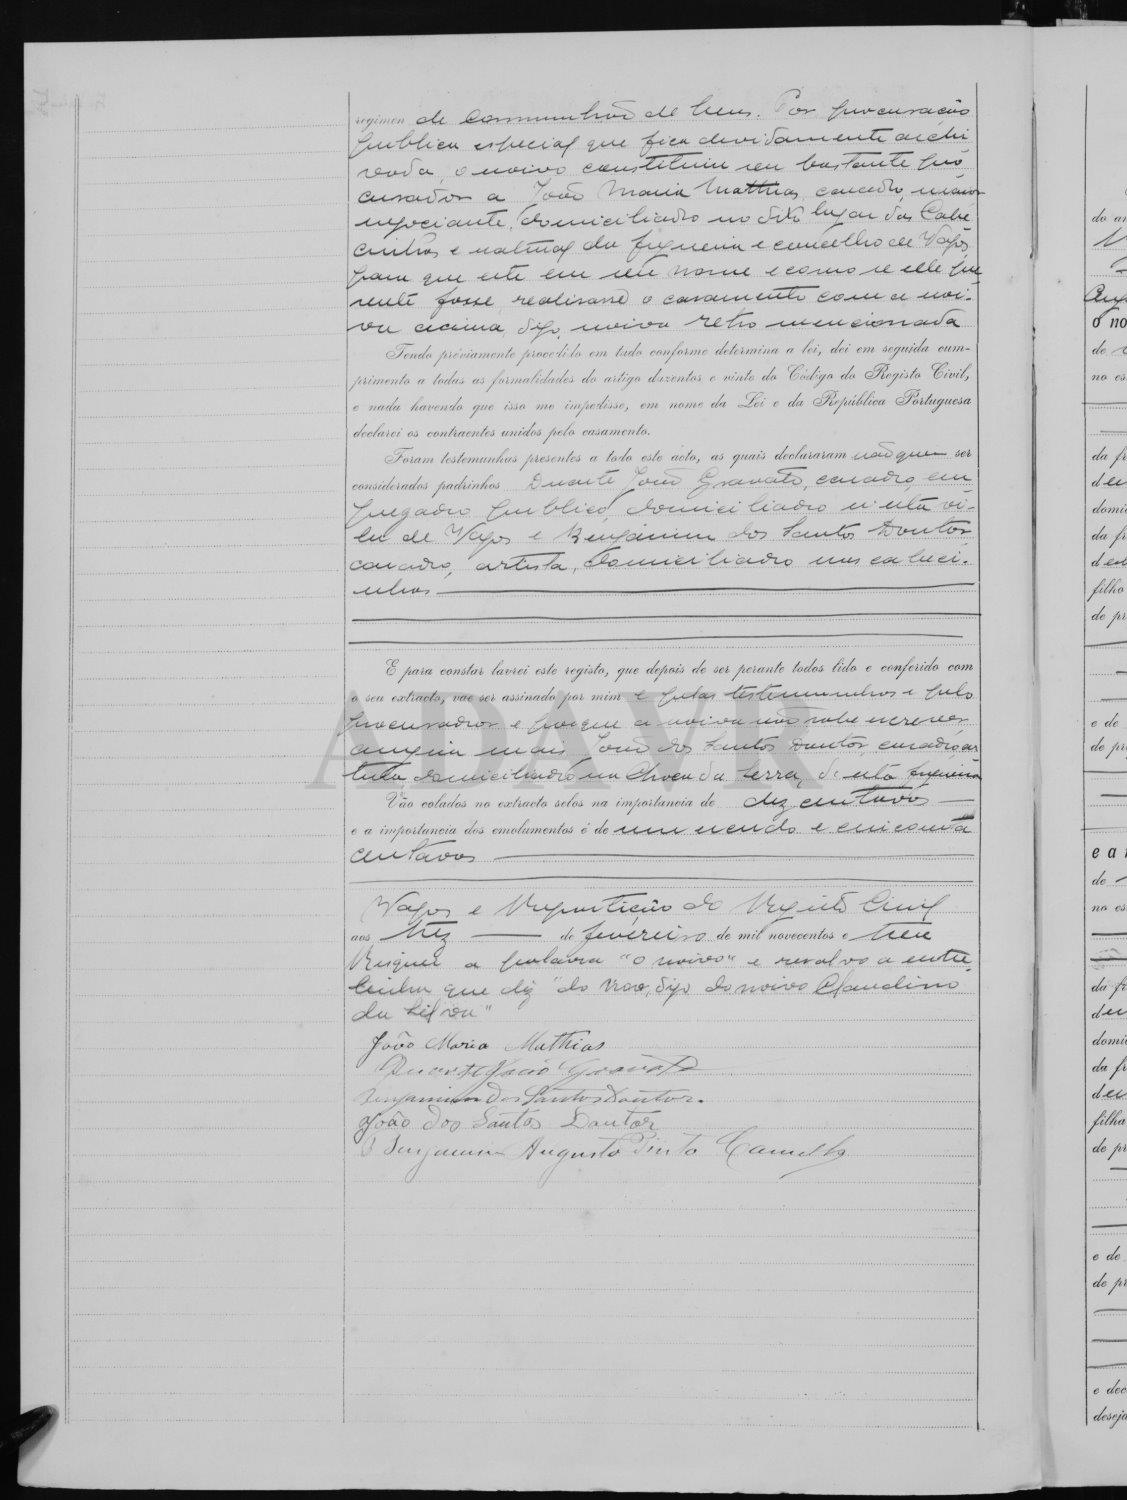 regimen de communhão de bens. Por procuração
publica especial que fica devidamente archi
vada, o noivo constituiu seu bastante pro
curador a João Maria Mathias, casado, maior
negociante, domiciliado no dito lugar das Cale
cinhas e natural da freguesia e concelho de Vagos
para que este em seu nome e como se elle pre
sente fosse, realisasse o casamento com a noi-
va acima, digo, noiva retro mencionada
Tendo préviamente procedido em tudo conforme determina a lei, dei em seguida cum-
primento a todas as formalidades do artigo duzentos e vinte do Código do Registo Civil,
e nada havendo que isso me impedisse, em nome da Lei e da República Portuguesa
declarei os contraentes unidos pelo casamento.
Foram testemunhas presentes a todo este acto, as quais declararam não quer ser
considerados padrinhos Duarte João Gravato, casado, em
pregado publico, domiciliado n'esta vi-
la de Vagos e Benjamim dos Santos Doutor
casado, artista, domiciliado nas caleci-
nhas
E para constar lavrei este registo, que depois de ser perante todos lido e conferido com
o seu extracto, vae ser assinado por mim e pelas testemunhas e pelo
procurador e porque a noiva não sabe escrever
assigna mais João dos Santos Doutor, casado, ar
tista, domiciliado na Choca da Serra, d'esta freguesia
Vão colados no extracto selos na importancia de dez centavos
e a importancia dos emolumentos é de um escudo e cincoenta
centavos
Vagos e Repartição do Registo Civil
aos trez de fevereiro de mil novecentos e treze
Risquei a palavra "o noivo" e resalvo a entre
linha que diz "do digo do noivo Claudino
da Silva"
João Maria Mathias
Duarte João Gravato
Benjamim dos Santos Doutor.
João dos Santos Doutor
Benjamim Augusto Pinto Camello
ADAVR
do an
o no
de
no es
da fr
domi
da fr
filho
de pr
e de
de pr
e a
de
no es
da fr
domi
da fr
filha
de pr
e de
de pr
e dec
deseja